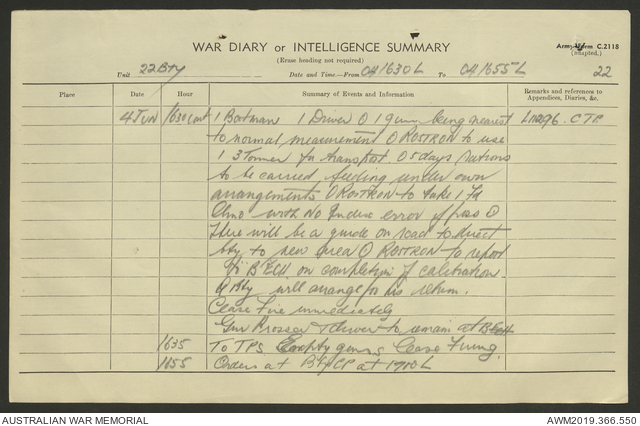 WAR DIARY or INTELLIGENCE SUMMARY
(Erase heading not required)
Army Form C.2118
(adapted.)
Unit 22 Bty
Date and Time—From 041630L To 041655L
22
Place
Date
Hour
Summary of Events and Information
Remarks and references to Appendices, Diaries, &c.
4 JUN 1630 cont 1 Boatman 1 Driver O 1 gun being nearest
CTC
to normal measurement O ROSTRON to use
1 3 Tonner for transport O 5 days rations
to be carried feeding under own
arrangements O ROSTRON to take 1 Fd
Clino with No Index error if poss O
There will be a guide on road to direct
Bty to new area O ROSTRON to report
on completion of calibration.
Bty will arrange for his return.
Cease Fire immediately
Gnr Prosser & driver to remain at
1635 To TPS Empty guns, Cease Firing.
1655 Orders at Bty CP at 1900 L
AUSTRALIAN WAR MEMORIAL
AWM2019.366.550